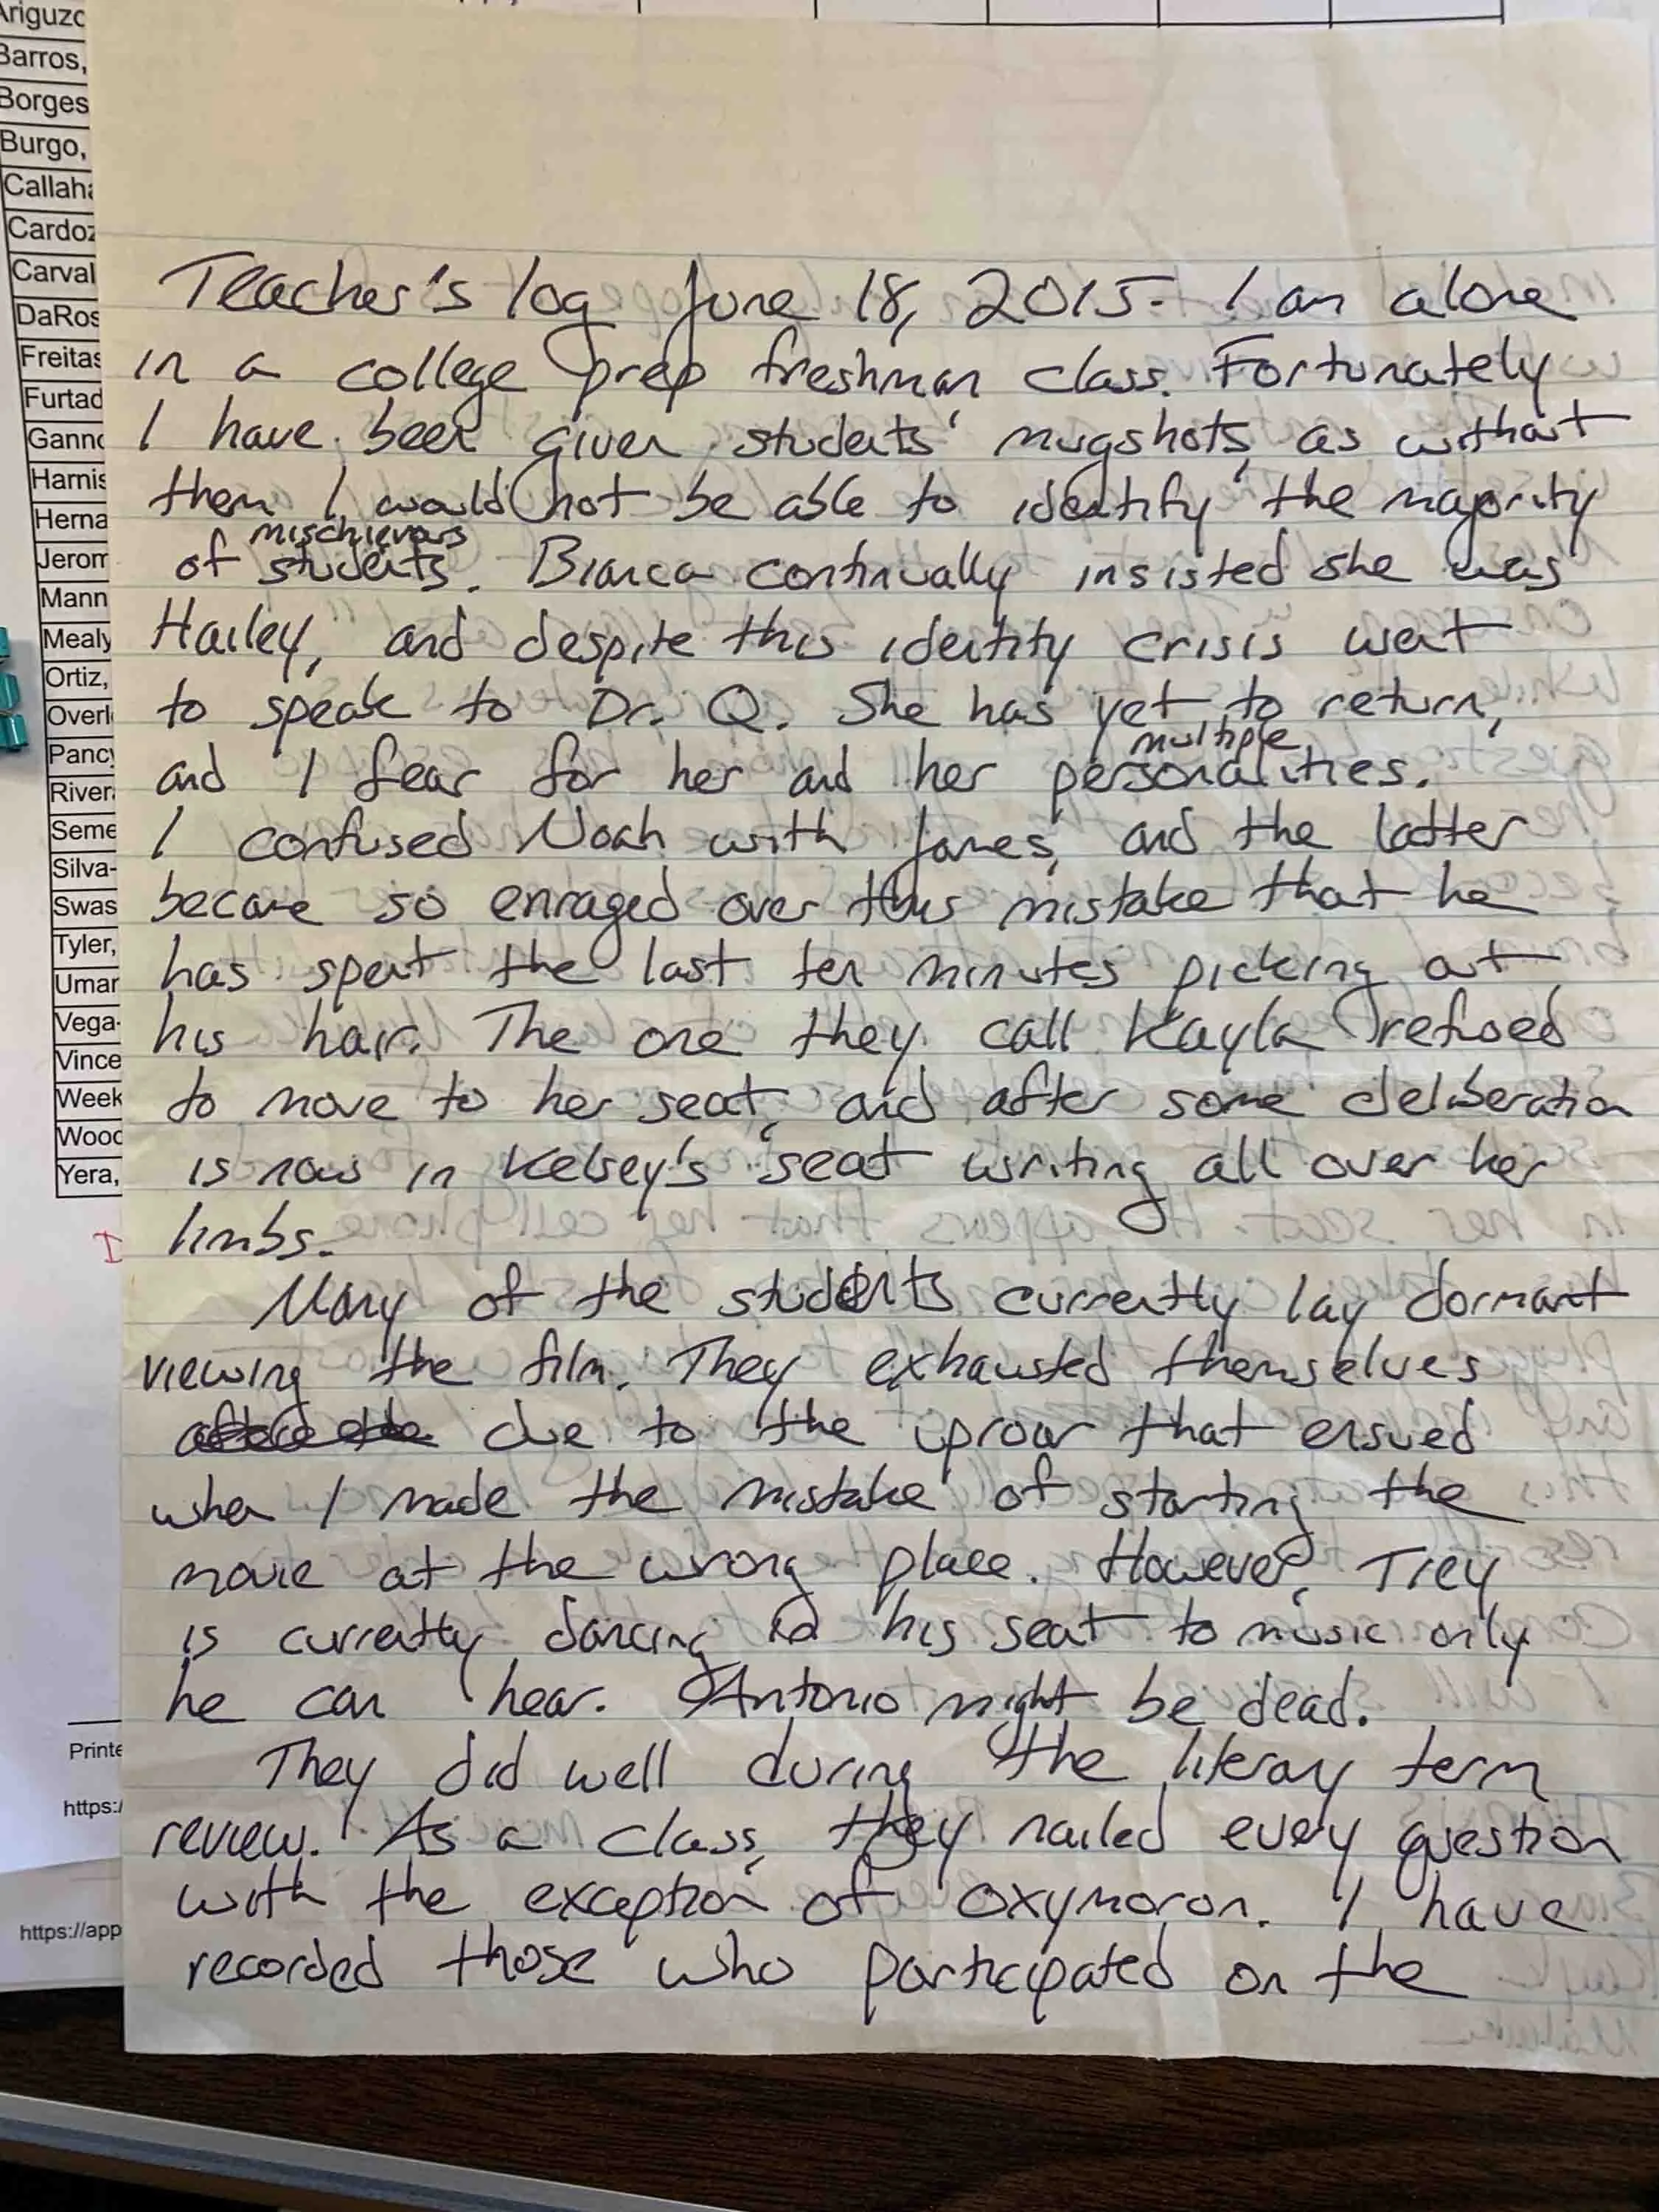 Ariguzo
Barros,
Borges
Burgo,
Callaha
Cardoz
Carval
DaRos
Freitas
Furtad
Ganno
Harnis
Herna
Jerom
Mann
Mealy
Ortiz,
Overl
Pancy
River
Seme
Silva-
Swas
Tyler,
Umar
Vega-
Vince
Week
Wood
Yera,
Printe
https:/
https://app
Teacher's log June 18, 2015. I am alone
in a college prep freshman class. Fortunately
I have been given students' mugshots, as without
them I would not be able to identify the majority
of mischievous students. Bianca continually insisted she was
Hailey, and despite this identity crisis went
to speak to Dr. Q. She has yet to return,
and I fear for her and her multiple personalities.
I confused Noah with James, and the latter
became so enraged over this mistake that he
has spent the last ten minutes picking out
his hair. The one they call Kayla refused
to move to her seat, and after some deliberation
is now in Kelsey's seat writing all over her
limbs.
Many of the students currently lay dormant
viewing the film. They exhausted themselves
due to the uproar that ensued
when I made the mistake of starting the
movie at the wrong place. However, Trey
is currently dancing in his seat to music only
he can hear. Antonio might be dead.
They did well during the literay term
review. As a class, they nailed every question
with the exception of oxymoron. I have
recorded those who participated on the